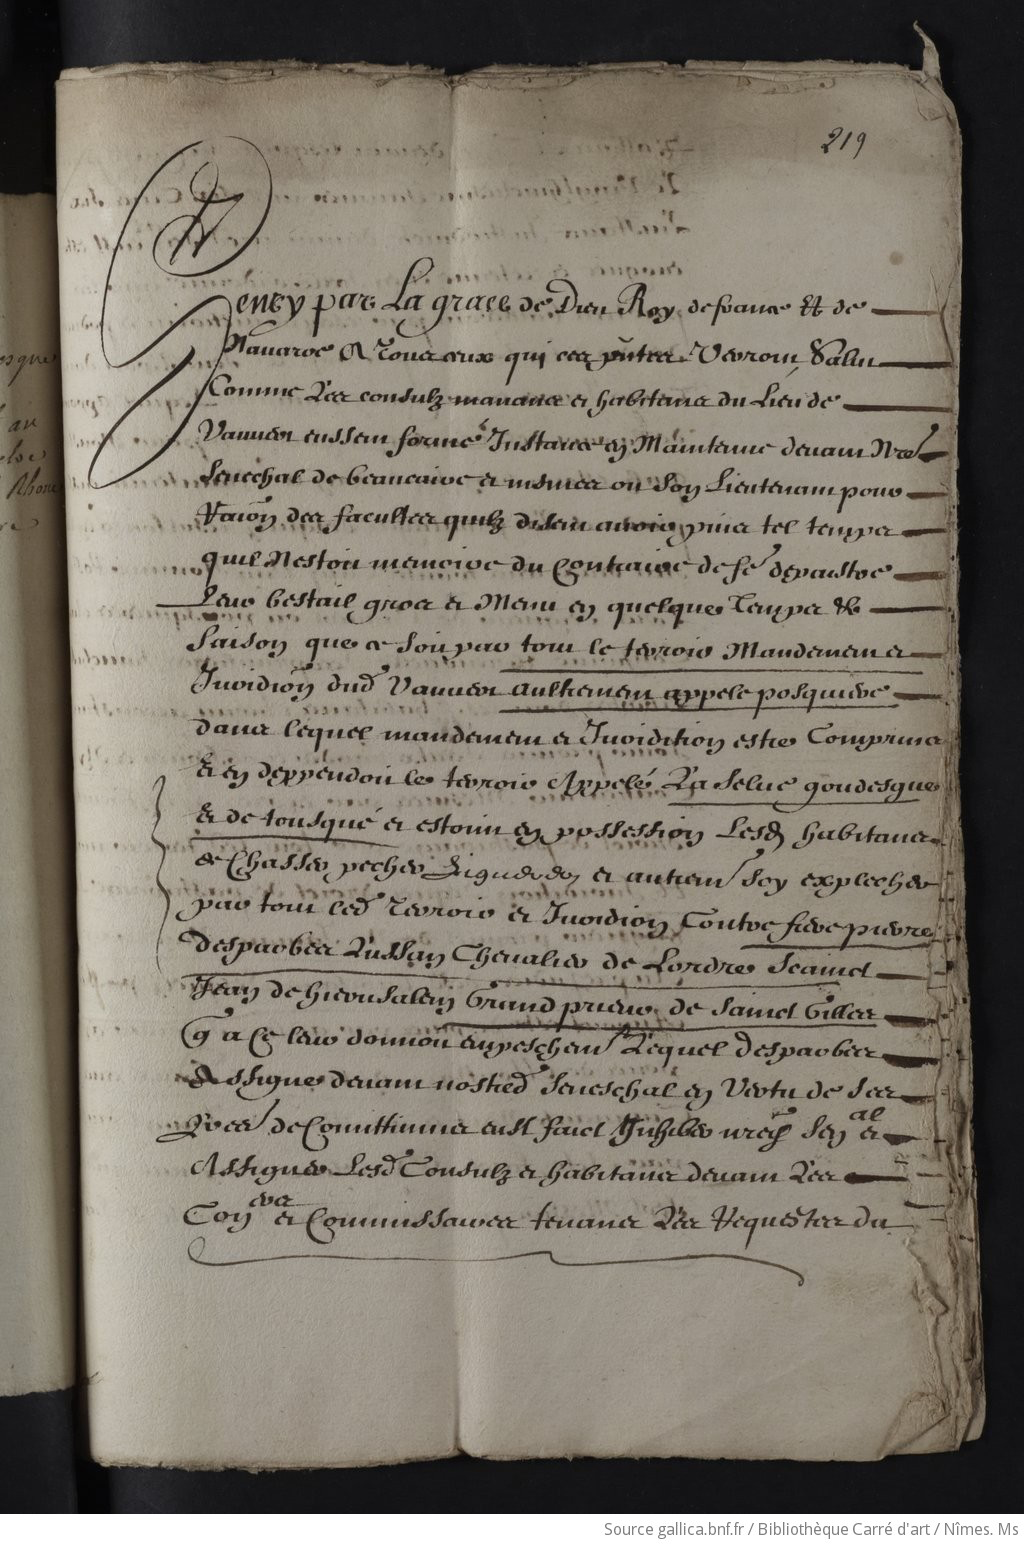 219
Henry par La grace de Dieu Roy de france Et de
Navarre A Tous ceux qui ces pntes Verront Salut
Comme Les consulz manans et habitans du Lieu de
Vauvert eussent formé Instance en Maintenue devant Nre
Seneschal de beaucaire et nismes ou Son Lieutenant pour
Raion des facultes quilz disent avoir puis tel temps
quil Nestoit memoire du Contraire de fe depaistre
Leur bestail gros et Menu en quelque Temps &
Saison que ce Soit par tout le terroir Mandement et
Juridion dud Vauvert aultrement appele posquieres
dans lequel mandement et Juridition estre Comprins
et en deppendoit le terroir Appelé La Selve goudesque
et de tousque et estoint en possession Lesd habitans
de Chasser pescher Lignerer et autremt Soy explecher
par tout led Terroir et Juridion Contre frere pierre
Desparbes Lussan Chevalier de Lordre Seainct
Jean de hierusalem Grand prieur de Sainct Gilles
q a Ce leur donnoit empeschemt Lequel desparbes
Assigne devant nostred Seneschal en Vertu de Ses
Lres de Committimus eust faict Inhiber nred Sen al et
Assigner Lesd Consulz et habitans devant Les
Con ers et Commissaires tenans Les Requestes du
Source gallica.bnf.fr / Bibliothèque Carré d'art / Nîmes. Ms